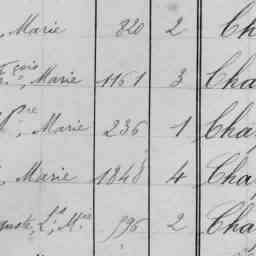 , Marie 820 2 Ch
Fçois, Marie 1161 3 Cha
Pre, Marie 236 1 Cha
, Marie 1848 4 Cha
guste, Ls, Mie 596 2 Cha